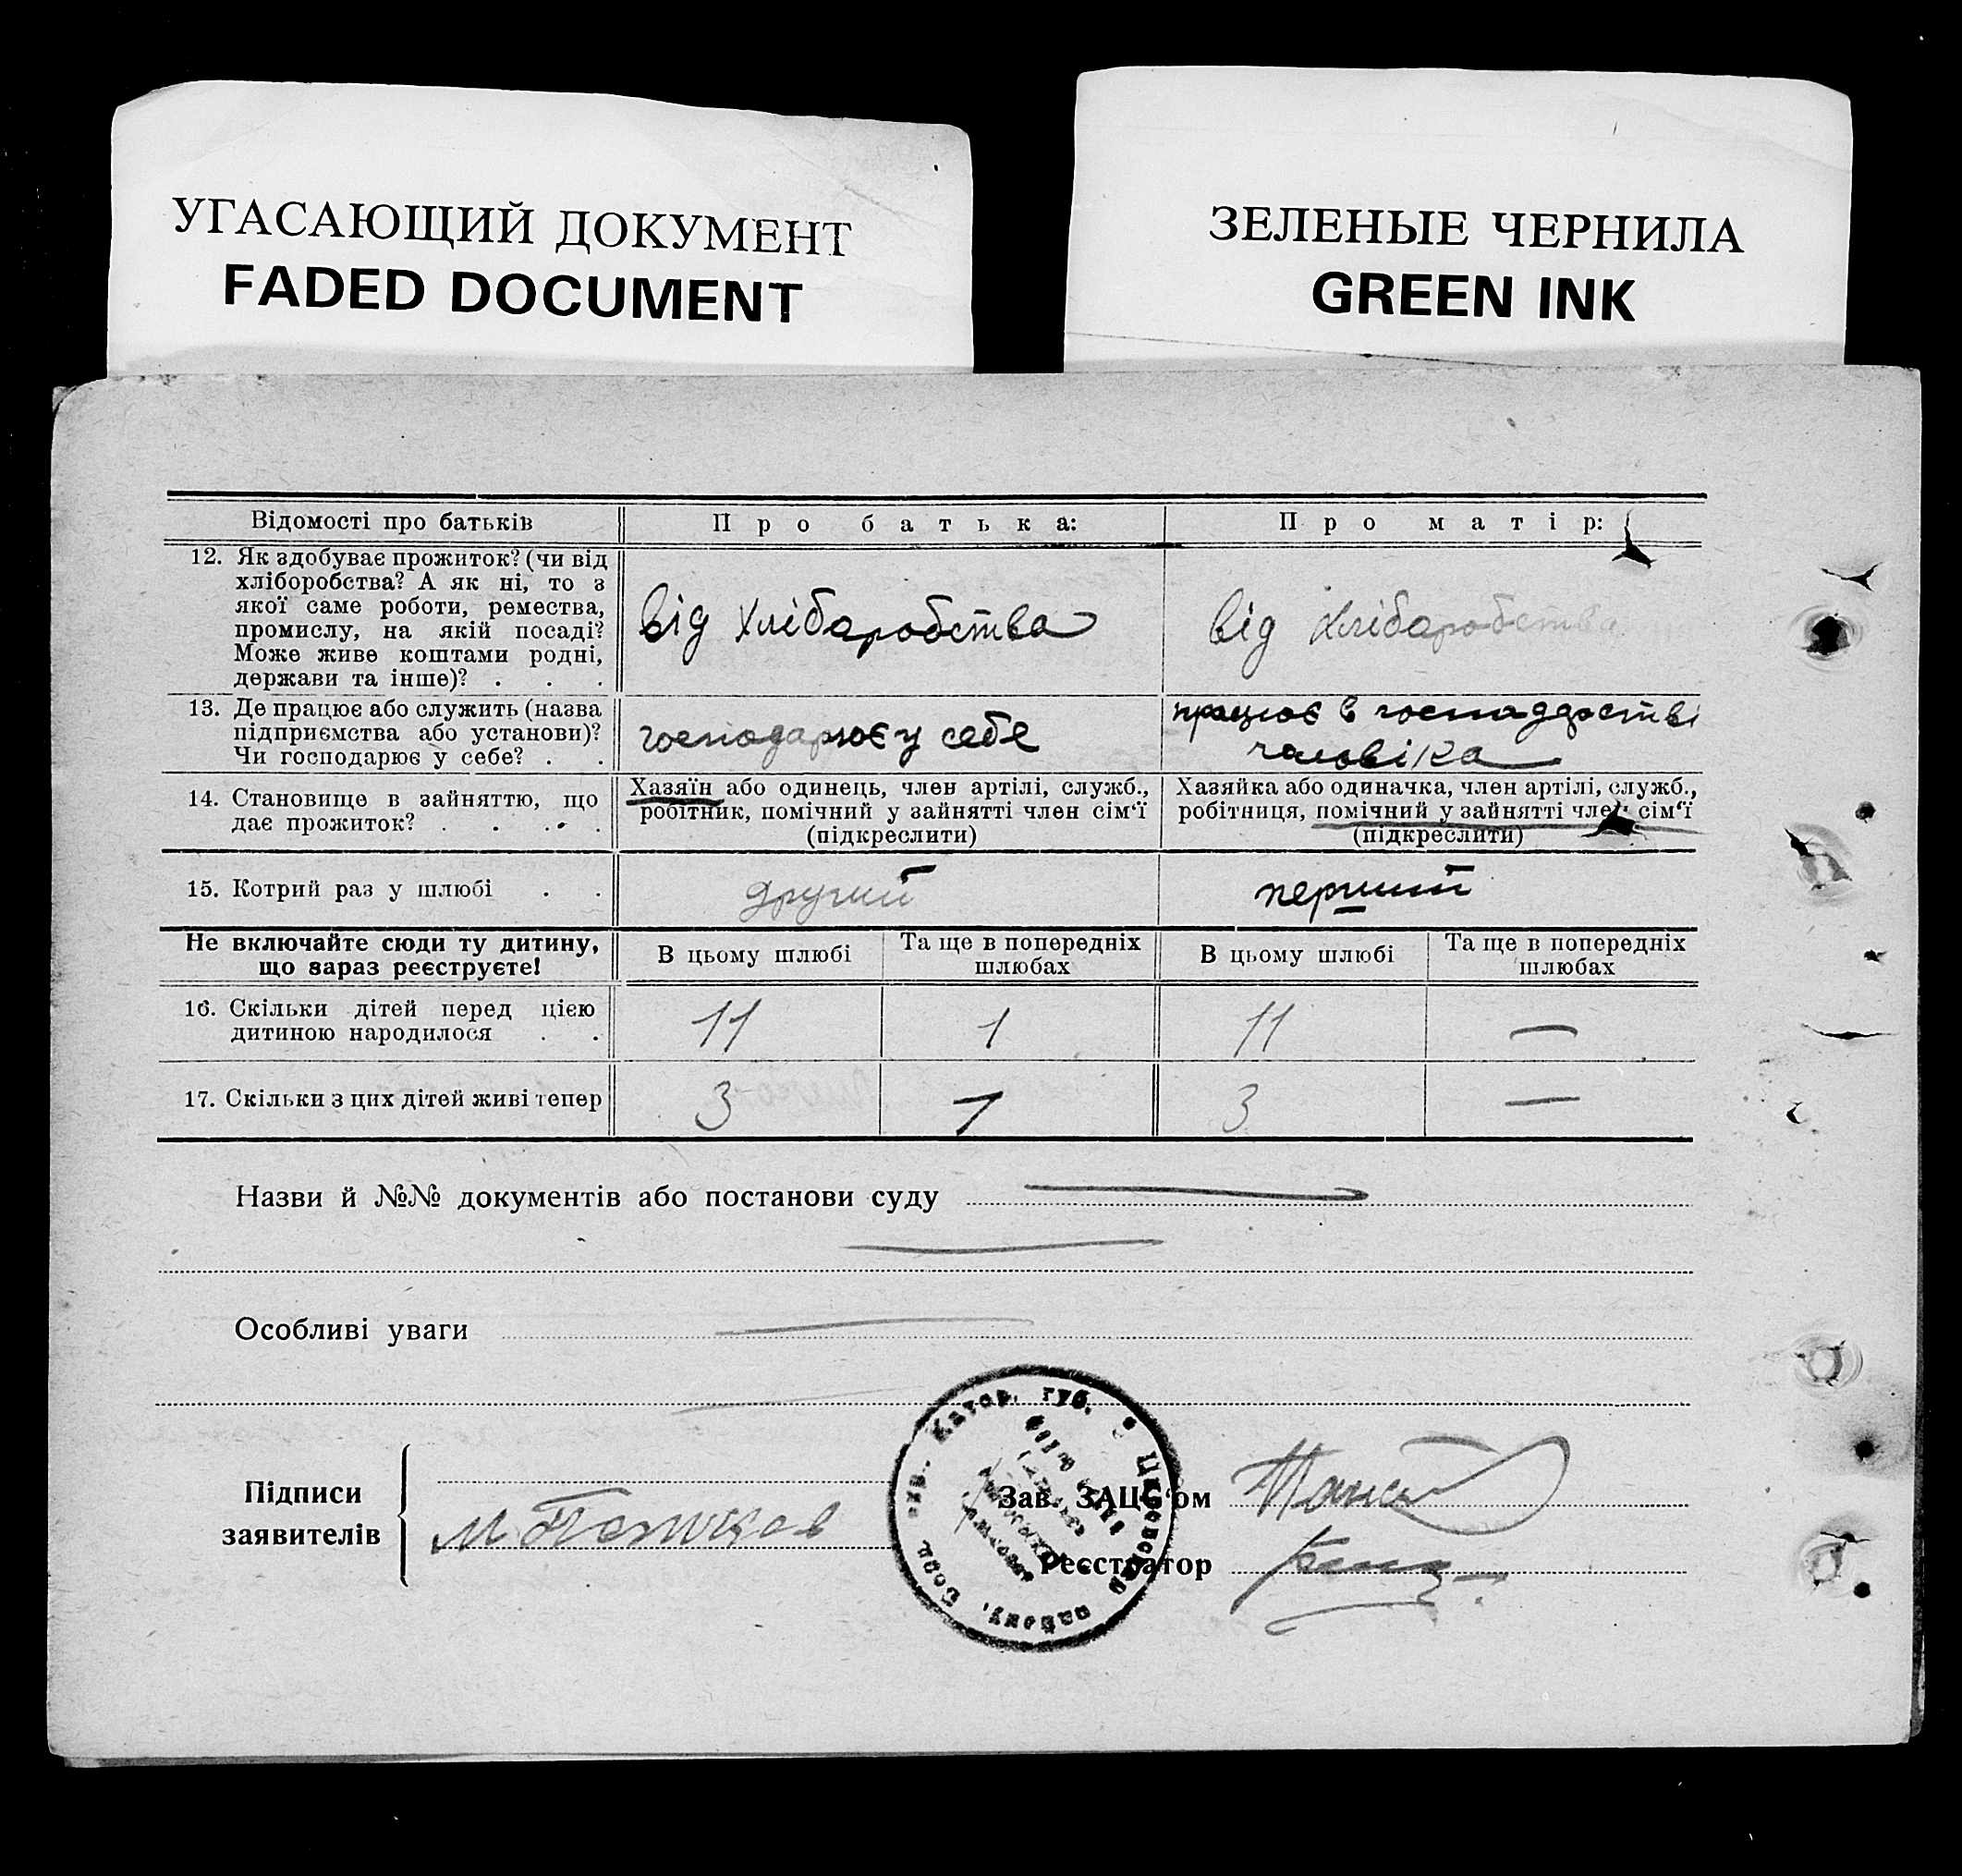 УГАСАЮЩИЙ ДОКУМЕНТ
FADED DOCUMENT
ЗЕЛЕНЫЕ ЧЕРНИЛА
GREEN INK
Відомості про батьків
Про батька:
Про матір:
12. Як здобуває прожиток? (чи від
хліборобства? А як ні, то з
якої саме роботи, ремества,
промислу, на якій посаді?
Може живе коштами родні,
держави та інше)? . . .
від хлібаробства
від хлібаробства
13. Де працює або служить (назва
підприємства або установи)?
Чи господарює у себе? . .
господарює у себе
працює в господарстві
чаловіка
14. Становище в зайняттю, що
дає прожиток? . . . .
Хазяїн або одинець, член артілі, служб.,
робітник, помічний у зайнятті член сім'ї
(підкреслити)
Хазяйка або одиначка, член артілі, служб.,
робітниця, помічний у зайнятті член сім'ї
(підкреслити)
15. Котрий раз у шлюбі . .
другий
перший
Не включайте сюди ту дитину,
що зараз реєструєте!
В цьому шлюбі
Та ще в попередніх
шлюбах
В цьому шлюбі
Та ще в попередніх
шлюбах
16. Скільки дітей перед цією
дитиною народилося . .
11
1
11
—
17. Скільки з цих дітей живі тепер
3
1
3
—
Назви й №№ документів або постанови суду
Особливі уваги
Підписи
заявителів
М
Зав. ЗАЦС'ом
Реєстратор
губ.
району,